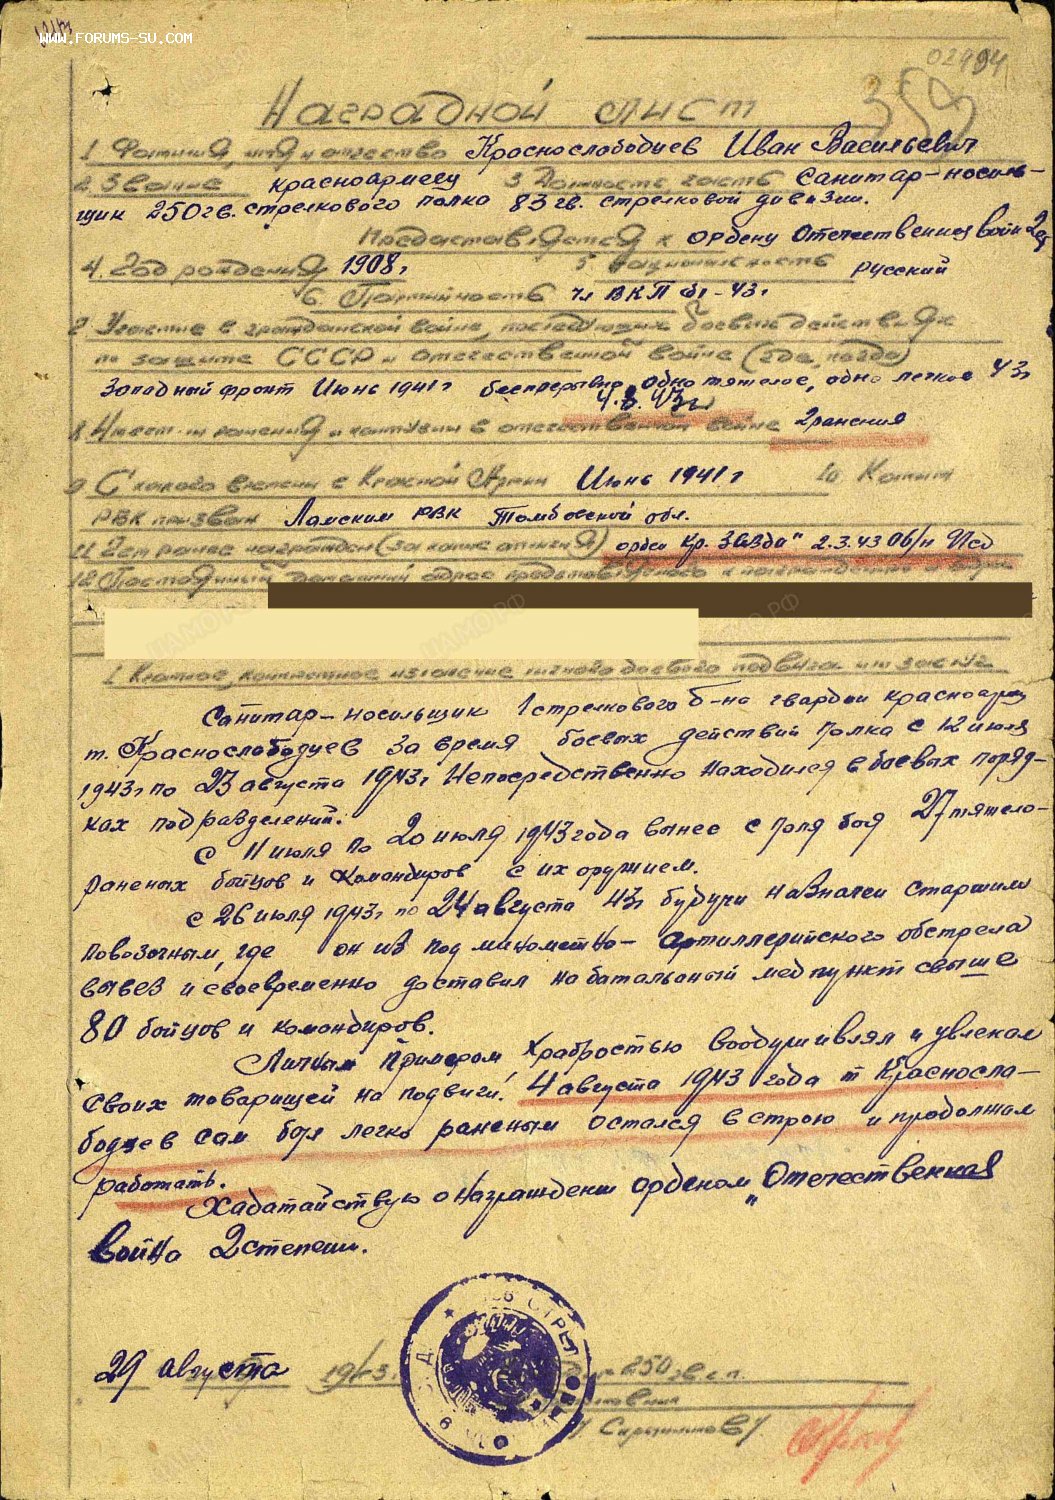 WWW.FORUMS-SU.COM
02994
Наградной лист
1. Фамилия, имя и отчество Краснослободцев Иван Васильевич
2. Звание красноармеец 3. Должность, часть Санитар-носиль-
щик 250 гв. стрелкового полка 83 гв. стрелковой дивизии.
Представляется к ордену Отечественная война 2 ст
4. Год рождения 1908 г 5. национальность русский
6. Партийность чл ВКП б с - 43 г
7. Участие в гражданской войне, последующих боевых действиях
по защите СССР и отечественной войне (где, когда)
Западный фронт Июнь 1941 г беспрерывно, одно тяжелое, одно легкое 43 г
4.8.43 г
8. Имеет ли ранения и контузии в отечественной войне 2 ранения
9. С какого времени в Красной Армии Июнь 1941 г 10. Каким
РВК призван Ламским РВК Тамбовской обл.
11. Чем ранее награжден (за какие отличия) орден Кр. Звезда" 2.3.43
12. Постоянный домашний адрес представляемого к награждению и адрес
1. Краткое, конкретное изложение личного боевого подвига или заслуг
Санитар-носильщик 1 стрелкового б-на гвардии красноармеец
т. Краснослободцев за время боевых действий полка с 12 июля
1943 г по 23 августа 1943 г непосредственно находился в боевых поряд-
ках подразделений.
С 11 июля по 20 июля 1943 года вынес с поля боя 27 тяжело-
раненых бойцов и командиров с их оружием.
С 26 июля 1943 г по 24 августа 43 г будучи назначен старшим
повозочным, где он из под минометно- артиллерийского обстрела
вывез и своевременно доставил на батальоный медпункт свыше
80 бойцов и командиров.
Личным примером, храбростью воодушивлял и увлекал
своих товарищей на подвиги. 4 августа 1943 года т Красносла-
бодцев сам был легко раненым остался в строю и продолжал
работать.
Хадатайствую о награждении орденом „Отечественная
война 2 степени.
29 августа 1943 г. 250 гв с.п.